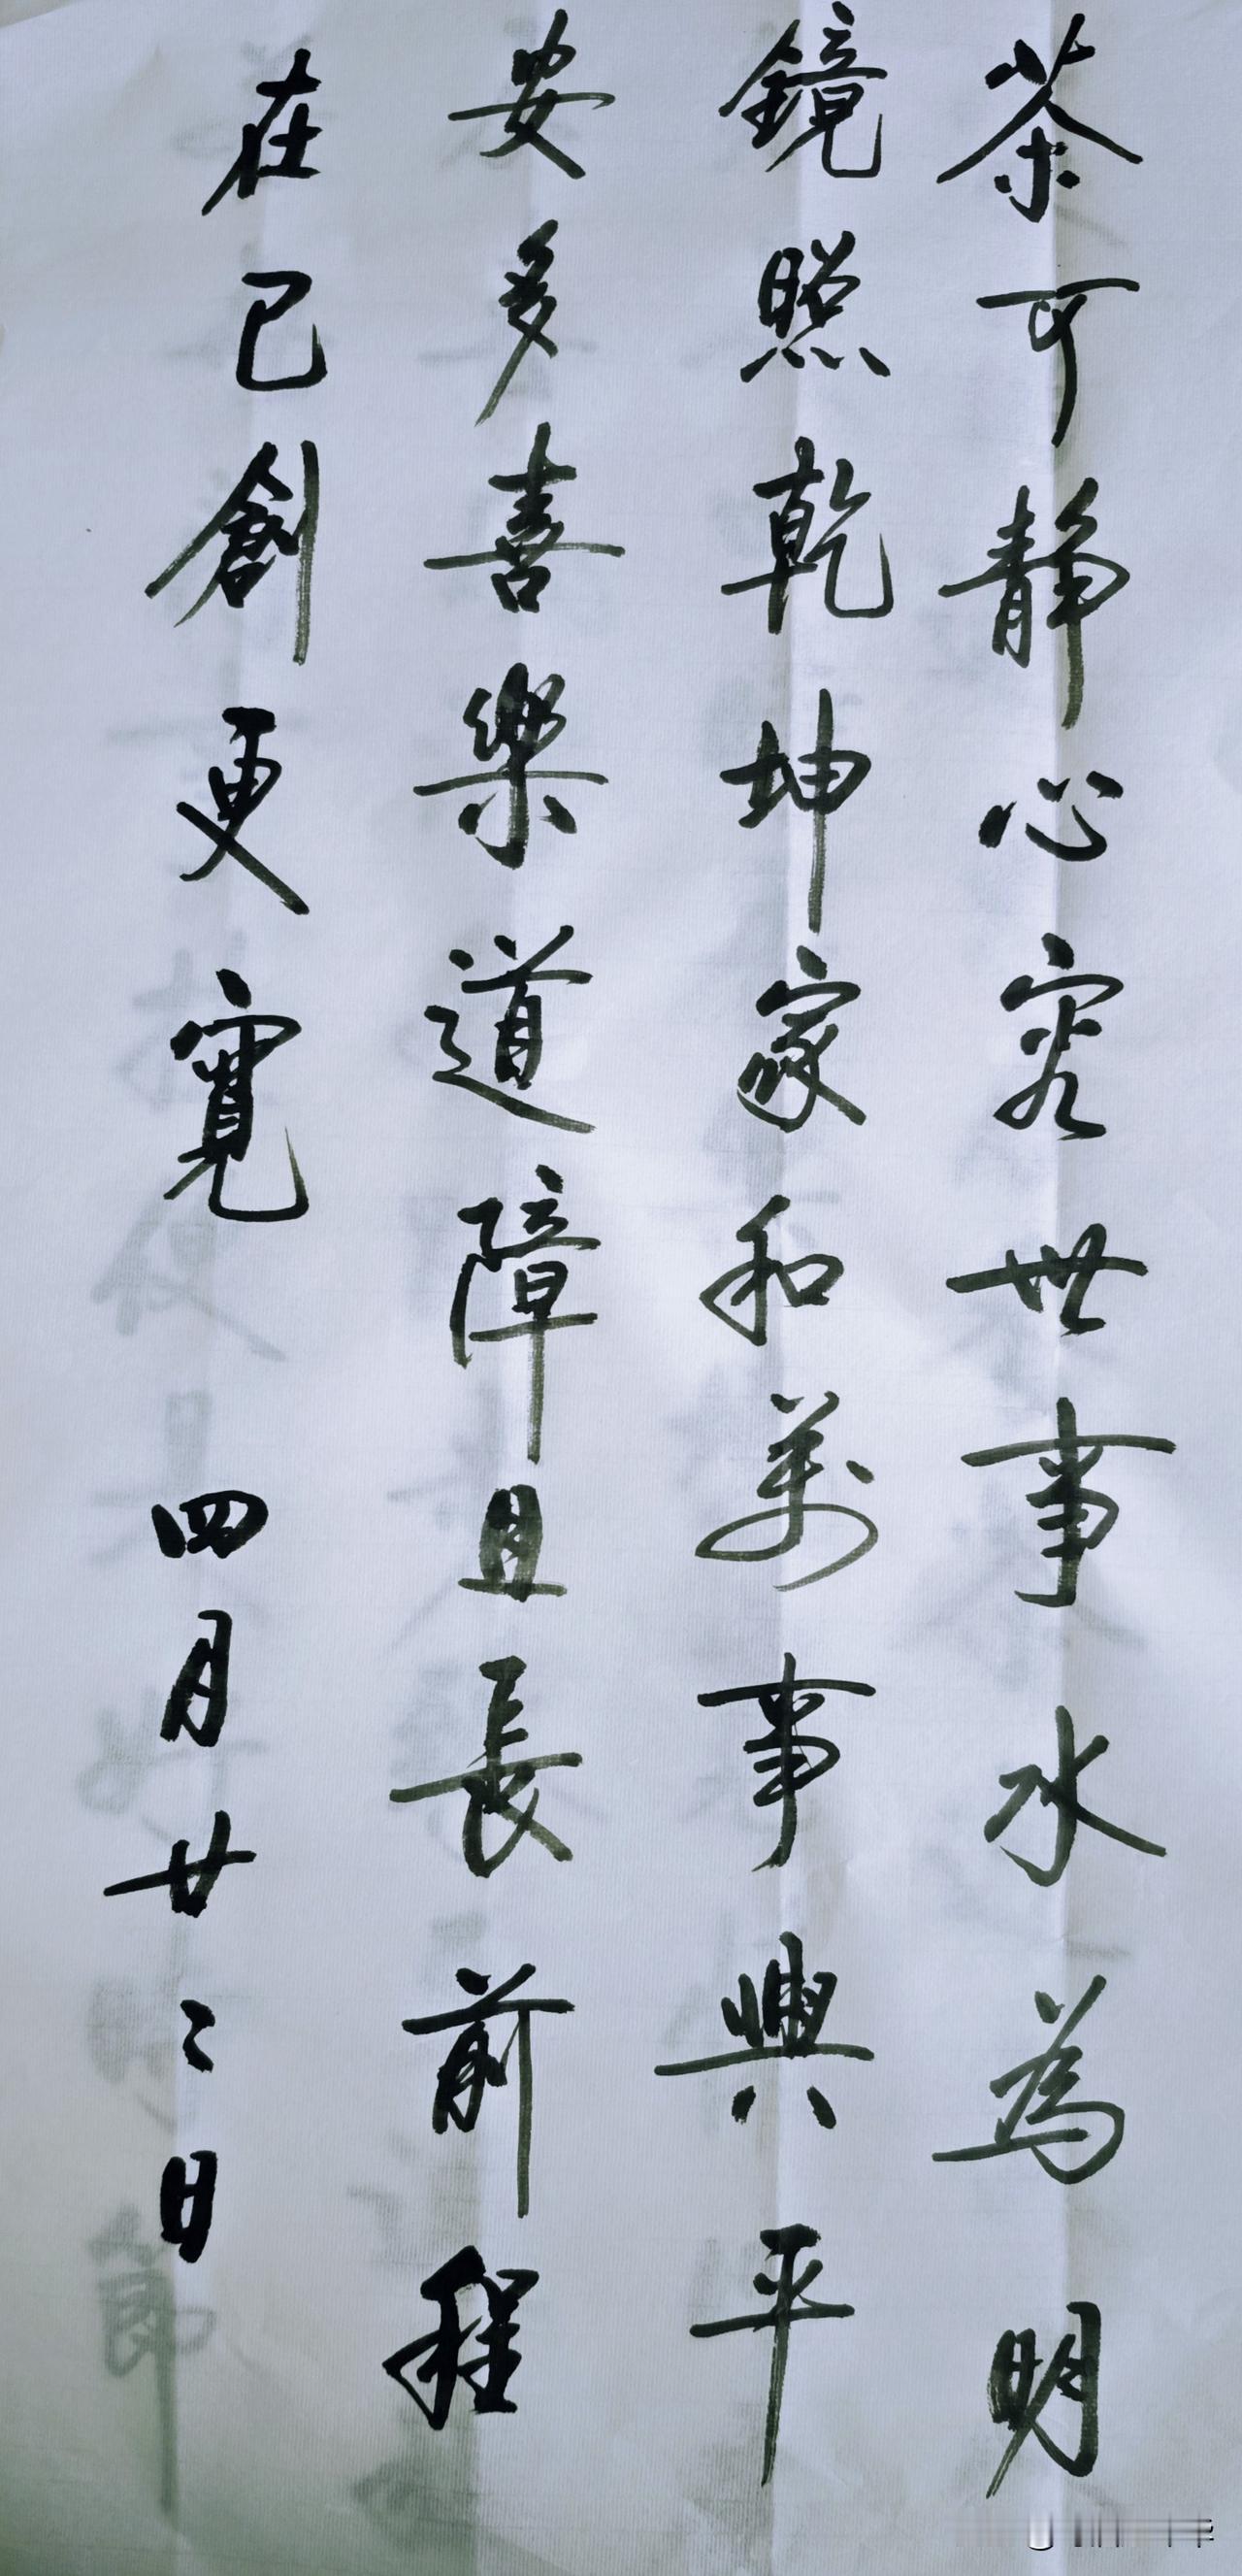 茶可静心容世事水為明
鏡照乾坤家和萬事興平
安多喜樂道障且長前程
在己創更寬
四月廿二日